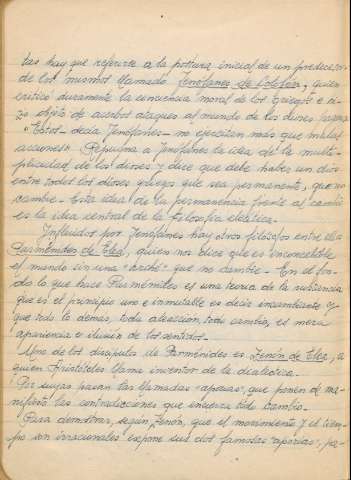 tas hay que referirse a la postura inicial de un predecesor
de los mismos llamado Jenófanes de Colofón, quien
criticó duramente la conciencia moral de los griegos e hi-
zo objeto de acerbos ataques al mundo de los dioses paganos
"Estos - decía Jenófanes - no ejecutan más que malas
acciones". Repugna a Jenófanes la idea de la multi-
plicidad de los dioses y dice que debe haber un dios
entre todos los dioses griegos que sea permanente, que no
cambie - Esta idea de la permanencia frente al cambio
es la idea central de la filosofía eleática.
Influidos por Jenófanes hay otros filósofos entre ellos
Parménides de Elea, quien nos dice que es inconcebible
el mundo sin una "arché" que no cambie - En el fon-
do lo que hace Parménides es una teoría de la substancia
que es el principio uno e inmutable es decir incambiante y
que todo lo demás, toda alteración, todo cambio, es mera
apariencia e ilusión de los sentidos.
Uno de los discípulos de Parménides es Zenón de Elea, a
quien Aristóteles llama inventor de la dialéctica.
Por suyas pasan las llamadas "aporías", que ponen de ma-
nifiesto las contradicciones que encierra todo cambio.
Para demostrar, según Zenón, que el movimiento y el tiem-
po son irracionales expone sus dos famosas "aporías", pa-